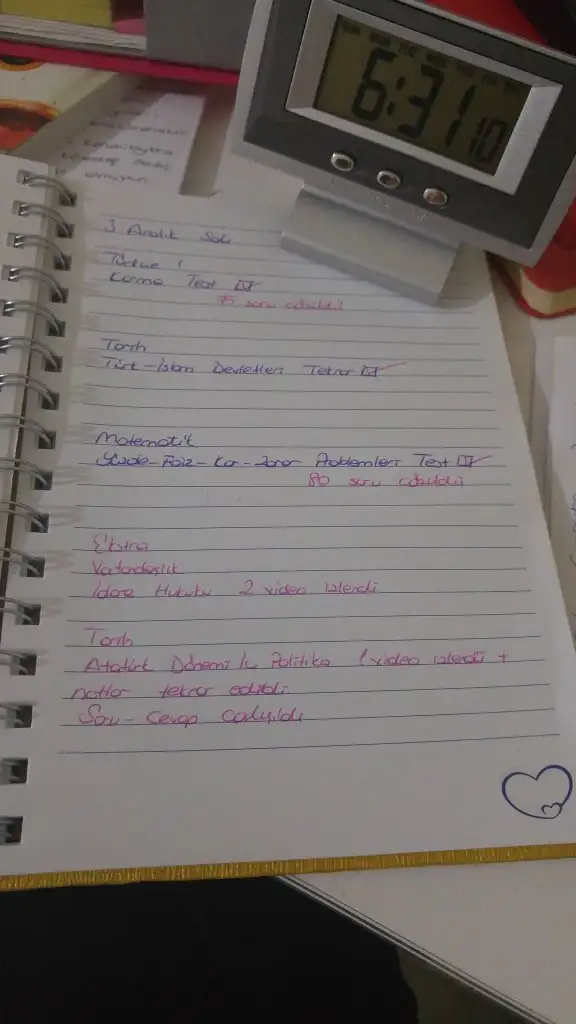 SUN MON TUE WED THU FRI SAT
6:31 10
3 Aralık Salı
Türkçe
Karma Test
71 soru çözüldü
Tarih
Türk-İslam Devletleri Tekrar
Matematik
Yüzde-Faiz-Kar-Zarar Problemleri Test
80 soru çözüldü
Ekstra
Vatandaşlık
İdare Hukuku 2 video izlendi
Tarih
Atatürk Dönemi İç Politika 1 video izlendi +
notlar tekrar edildi
Soru-Cevap çalışıldı